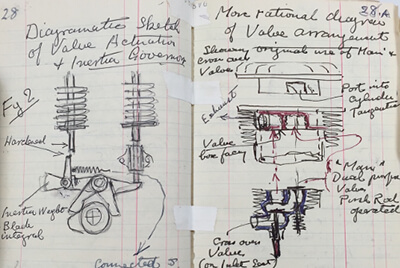 28
Diagramatic Sketch
of Valve Actuation
& Inertia Governor
Fig 2
Hardened
Inertia Weight
Blade
integral
Connected
28A
More rational diagram
of Valve arrangement
Showing original use of Main &
cross over
Valves
Exhaust
Port into
Cylinder
Tangential
Valve
box facing
"Main"
Dual purpose
Valve
Push Rod
operated
Cross over
Valve
(or Inlet Seat)